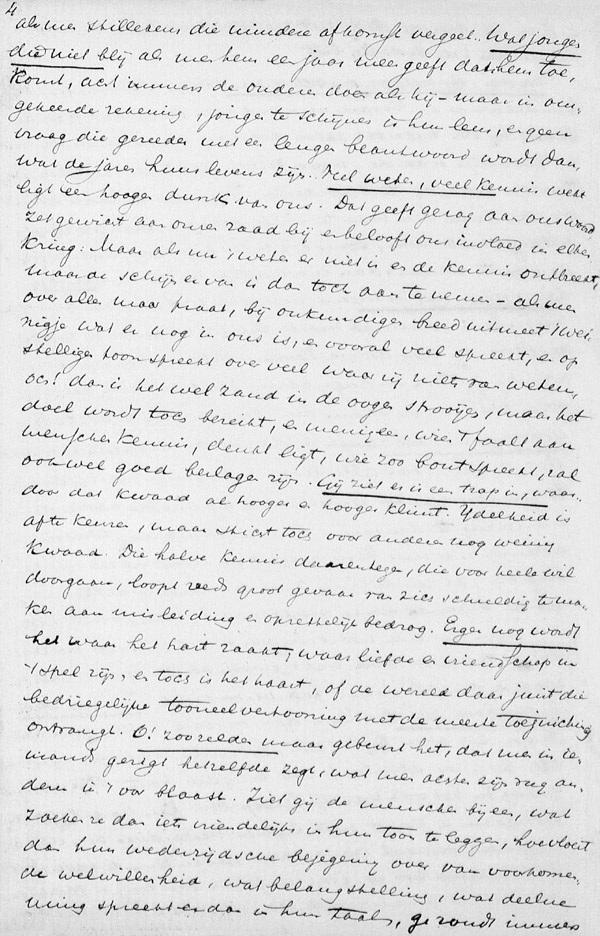 4
als men stilleven die mindere afkomst vergeet. Wat jonger
die niet blij als men hem een jaar meer geeft dat hem toe,
komt, acht immers de ouderen door als hij – maar in om,
gekeerde rekening, jonger te schijnen is hun leus, er geen
vraag die gereeder met een leugen beantwoord wordt dan,
wat de jaren huns levens zijn. Veel weten, veel kennis wekt
ligt een hooger dunk van ons. Dat geeft gezag aan ons woord
zet gewicht aan onzen raad bij en belooft ons invloed in elken
kring. Maar als nu 't weten er niet is en de kennis ontbreekt,
maar de schijn er van is dan toch aan te nemen – als men
over alles maar praat, bij onkundigen breed uitmeet 't wei,
nigje wat er nog in ons is, en vooral veel spreekt, en op
stelligen toon spreekt over veel waar wij niets van weten,
och! dan is het wel zand in de oogen strooijen, maar het
doel wordt toch bereikt, en menigeen, wien 't faalt aan
menschenkennis, denkt ligt, wie zoo bont spreekt, zal
ook wel goed beslagen zijn. Gij ziet er is een trap in, waar,
door dat kwaad al hooger en hooger klimt. IJdelheid is
af te keuren, maar sticht toch voor anderen nog weinig
kwaad. Die halve kennis daarentegen, die voor heele wil
doorgaan, loopt reeds groot gevaar van zich schuldig te ma,
ken aan misleiding en opzettelijk bedrog. Erger nog wordt
het waar het hart raakt, waar liefde en vriendschap in
't spel zijn, en toch is het haast, of de wereld daar juist die
bedriegelijke tooneelvertooning met de meeste toejuiching
ontvangt. O! zoo zelden maar gebeurt het, dat men in ie,
mands gezigt hetzelfde zegt, wat men achter zijn rug an,
deren in 't oor blaast. Ziet gij de menschen bijeen, wat
zoeken ze dan iets vriendelijks in hun toon te leggen, hoe vloeit
dan hun wederzijdsche bejegening over van voorkomen,
de welwillendheid, wat belangstelling, wat deelne
ming spreekt er dan in hun taal, gezondt immers